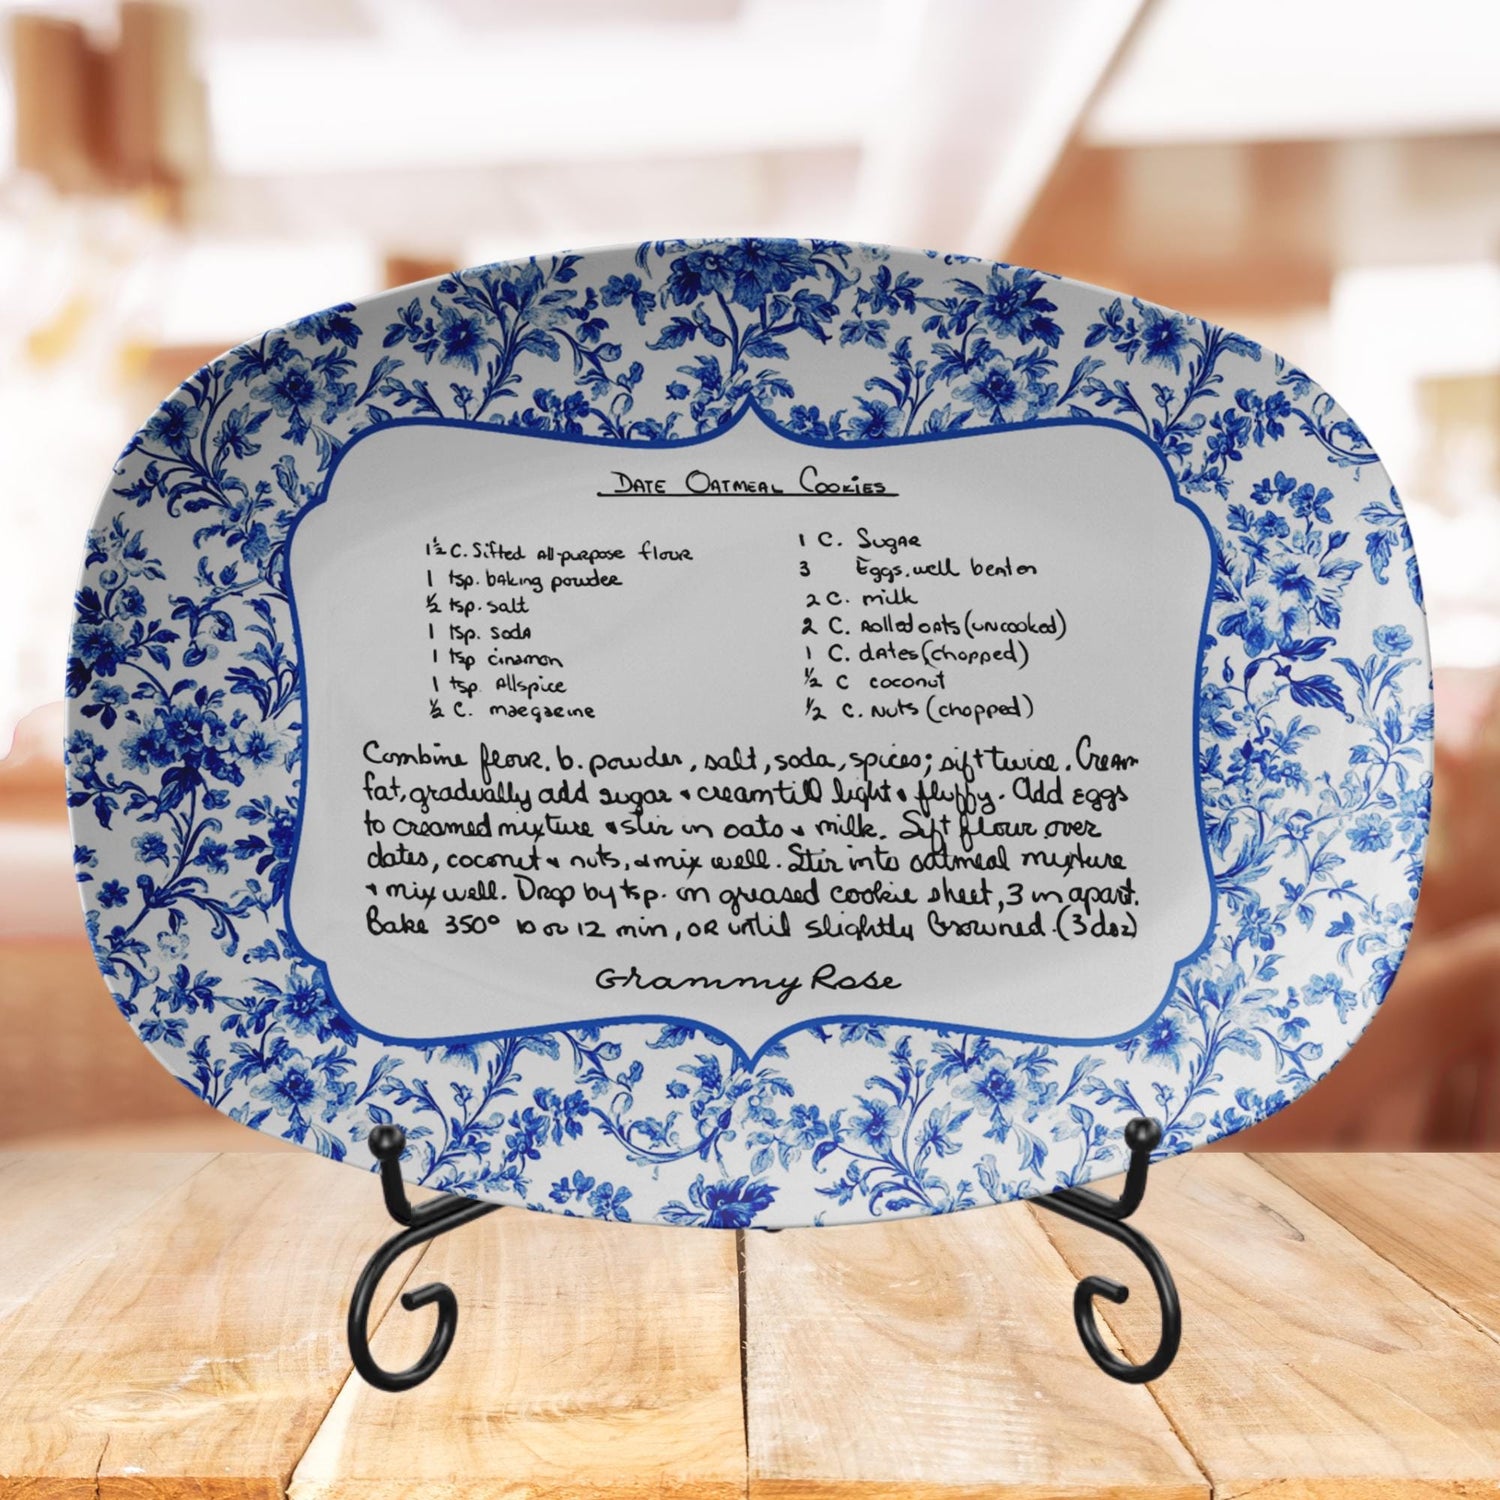 DATE OATMEAL COOKIES
1½ C. Sifted All-purpose flour
1 tsp. baking powder
½ tsp. salt
1 tsp. soda
1 tsp cinamon
1 tsp. Allspice
½ C. margarine
1 C. Sugar
3 Eggs, well beaten
2 C. milk
2 C. Rolled oats (uncooked)
1 C. dates (chopped)
½ C coconut
½ C. nuts (chopped)
Combine flour, b. powder, salt, soda, spices; sift twice. Cream
fat, gradually add sugar & cream till light & fluffy. Add eggs
to creamed mixture & stir in oats & milk. Sift flour over
dates, coconut & nuts, & mix well. Stir into oatmeal mixture
& mix well. Drop by tsp. on greased cookie sheet, 3 in apart.
Bake 350° 10 or 12 min, or until slightly browned. (3 doz)
Grammy Rose